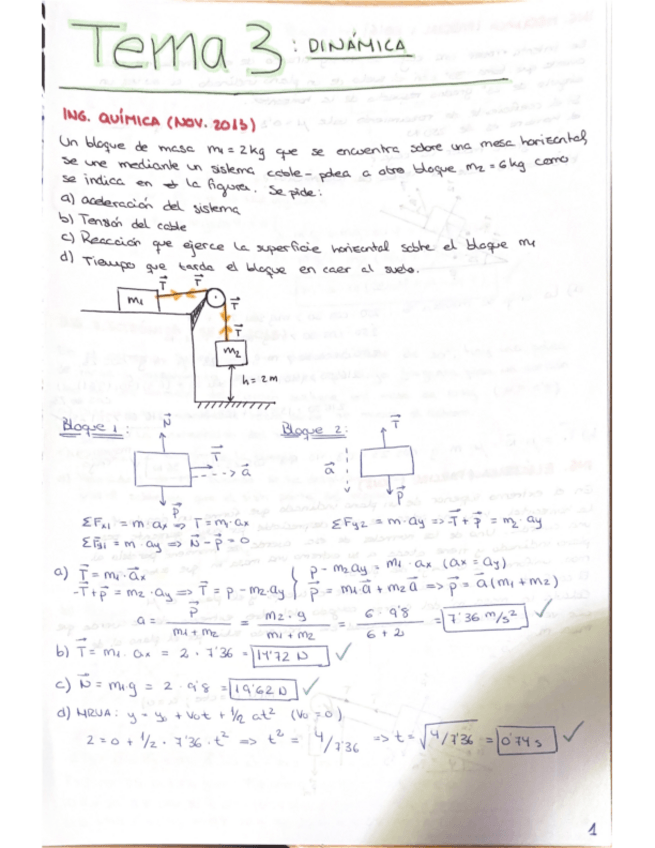 Tema 3: DINÁMICA
ING. QUÍMICA (NOV. 2013)
Un bloque de masa m1 = 2 kg que se encuentra sobre una mesa horizontal
se une mediante un sistema cable-polea a otro bloque m2 = 6 kg como
se indica en la figura. Se pide:
a) aceleración del sistema
b) Tensión del cable
c) Reacción que ejerce la superficie horizontal sobre el bloque m1
d) Tiempo que tarda el bloque en caer al suelo.
T T
m1
T
T
m2
h = 2m
Bloque 1: N Bloque 2: T
T
a a
P P
ΣFx1 = m·ax => T = m·ax ΣFy2 = m·ay => -T + P = m2·ay
ΣFy1 = m·ay => N - P = 0
a) T = m1·ax
-T+P = m2·ay => T = P - m2·ay { P - m2ay = m1·ax (ax = ay)
P = m1·a + m2a => P = a(m1 + m2)
a = P / (m1 + m2) = m2·g / (m1 + m2) = 6·9'8 / (6 + 2) = 7'36 m/s² ✓
b) T = m1·ax = 2·7'36 = 14'72 N ✓
c) N = m1g = 2·9'8 = 19'62 N ✓
d) MRUA: y = y0 + v0t + 1/2 at² (v0 = 0)
2 = 0 + 1/2 · 7'36 · t² => t² = 4/7'36 => t = √4/7'36 = 0'74 s ✓
1